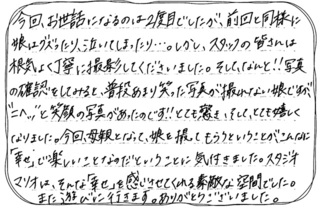 今回、お世話になるのは2度目でしたが、前回と同様に
娘はグズったり、泣いてしまったり…。しかし、スタッフの皆さんは
根気よく丁寧に撮影してくださいました。そして、なんと!!写真
の確認をしてみると、普段あまり笑った写真が撮れない娘ですが、
"ニヘッ"と笑顔の写真があったのです!!とても驚き、そして、とても嬉しく
なりました。今回、母親となって、娘を撮ってもらうということがこんなに
「幸せ」で楽しいことなのだということに気付きました。スタジオ
マリオは、そんな「幸せ」を感じさせてくれる素敵な空間でした。
また遊びに行きます。ありがとうございました。